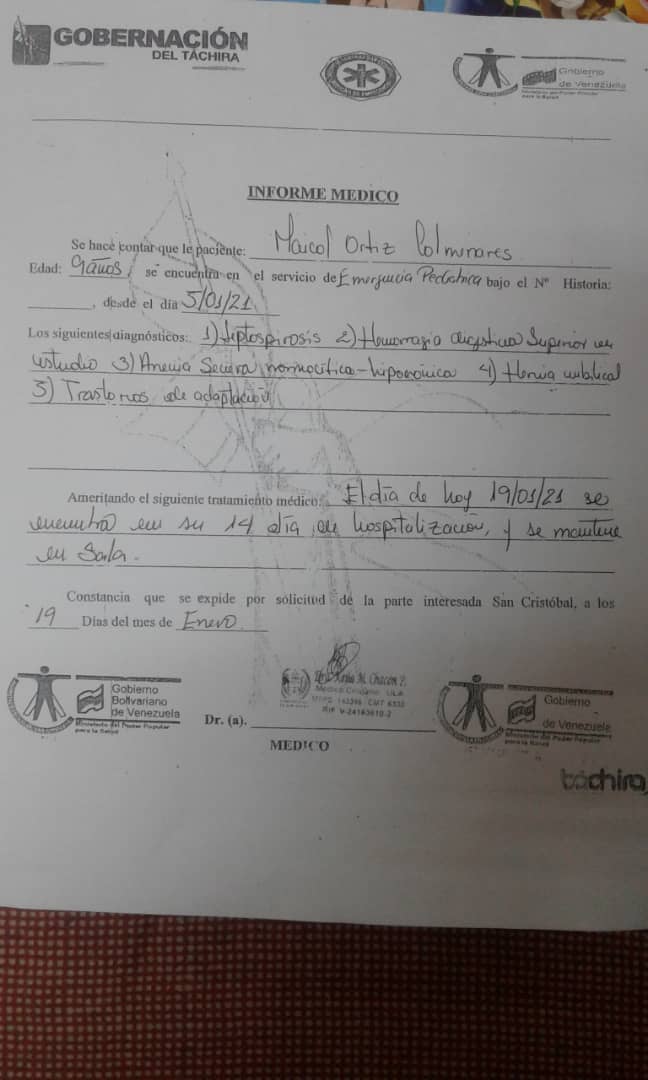 GOBERNACIÓN
DEL TÁCHIRA
Gobierno
de Venezuela
Ministerio del Poder Popular
para la Salud
INFORME MEDICO
Se hace contar que le paciente: Maicol Ortiz Colminares
Edad: 9 años, se encuentra en el servicio de Emergencia Pediatrica bajo el Nº Historia:
, desde el día 5/01/21
Los siguientes diagnósticos: 1) Leptospirosis 2) Hemorragia digestiva Superior en
estudio 3) Anemia Severa normocitica - hipocrómica 4) Hernia umbilical
5) Trastornos de adaptación
Ameritando el siguiente tratamiento médico: El día de hoy 19/01/21 se
encuentra en su 14 día de hospitalización, y se mantiene
en Sala.
Constancia que se expide por solicitud de la parte interesada San Cristóbal, a los
19 Días del mes de Enero
Gobierno
Bolivariano
de Venezuela
Ministerio del Poder Popular
para la Salud
M. Chacón P.
Médico Cirujano ULA
CMT 6332
Rif V-24163610-2
Dr. (a).
MEDICO
Gobierno
de Venezuela
Ministerio del Poder Popular
para la Salud
táchira